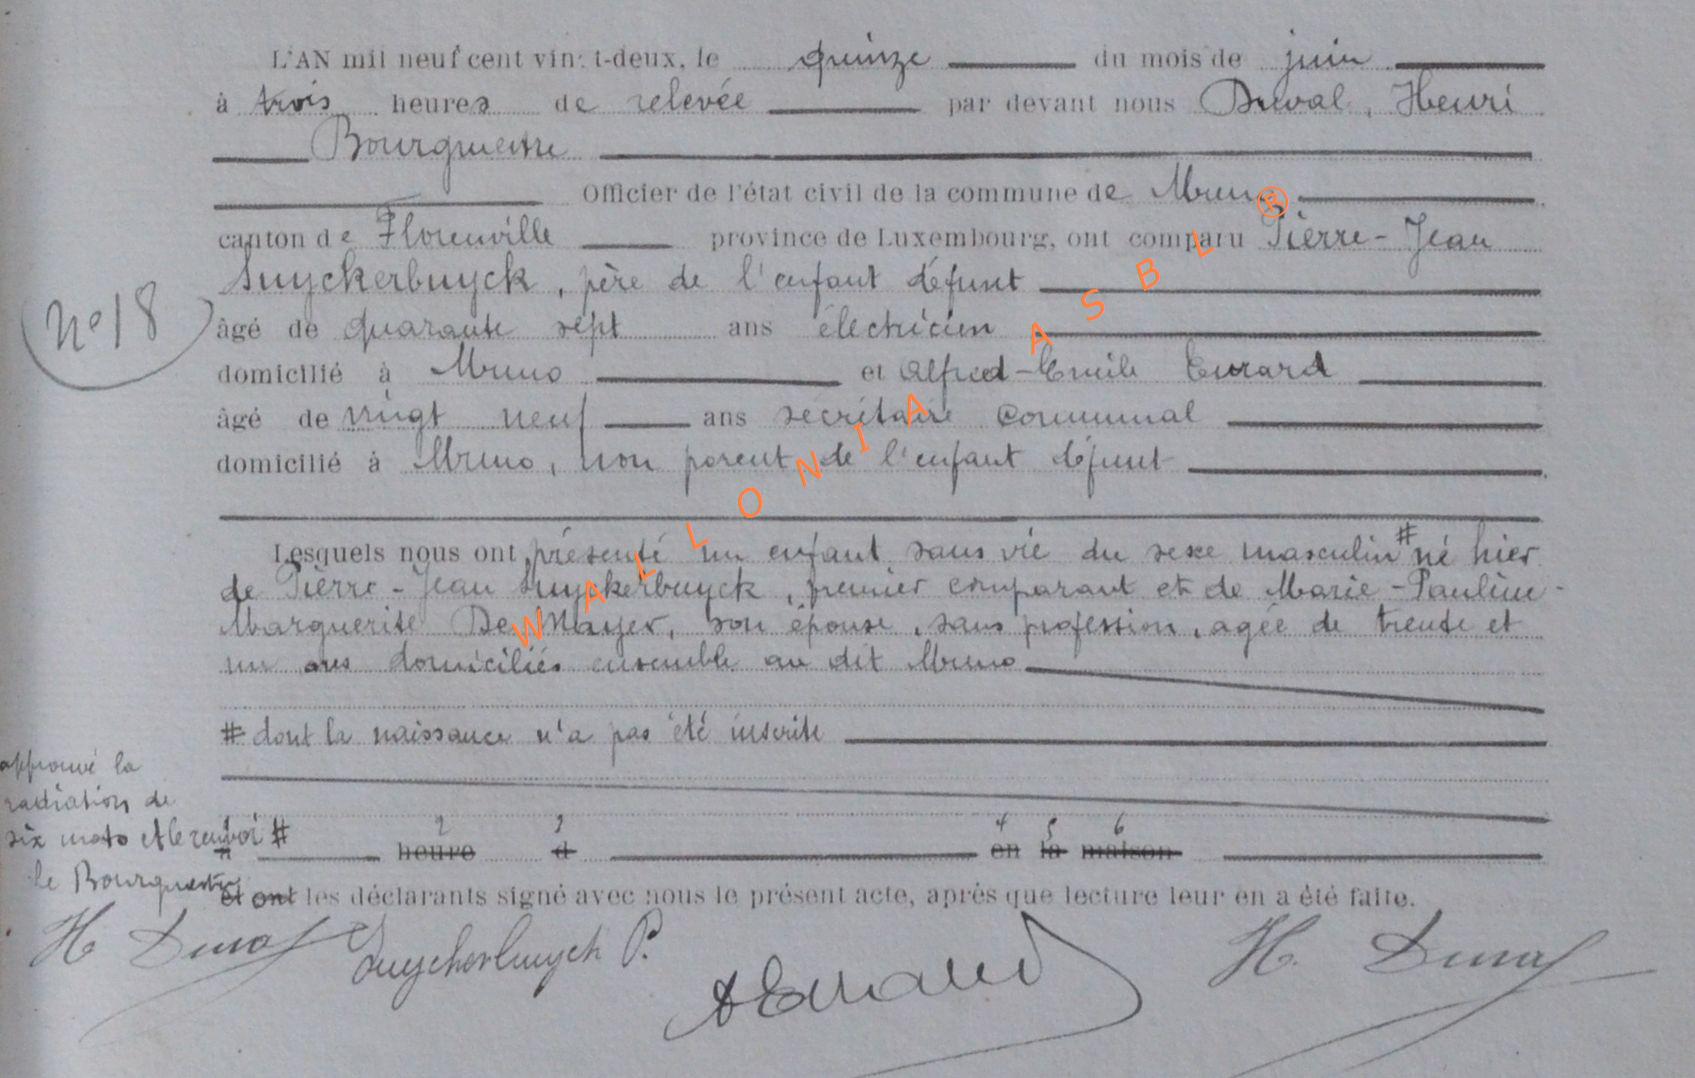 L'AN mil neuf cent vingt-deux, le quinze du mois de juin
à trois heures de relevée par devant nous Duval, Henri
Bourgmestre
Officier de l'état civil de la commune de Muno
canton de Florenville province de Luxembourg, ont comparu Pierre-Jean
Suyckerbuyck, père de l'enfant défunt
N° 18
âgé de quarante sept ans électricien
domicilié à Muno et Alfred-Emile Evrard
âgé de vingt neuf ans secrétaire communal
domicilié à Muno, non parent de l'enfant défunt
Lesquels nous ont présenté un enfant sans vie du sexe masculin # né hier
de Pierre-Jean Suyckerbuyck, premier comparant et de Marie-Pauline-
Marguerite De Mayer, son épouse, sans profession, agée de trente et
un ans domiciliés ensemble au dit Muno
# dont la naissance n'a pas été inscrite
approuvé la
radiation de
six mots et le renvoi #
le Bourgmestre
1 2 3 4 5 6
à heure d en la maison
et ont les déclarants signé avec nous le présent acte, après que lecture leur en a été faite.
H Duval Suyckerbuyck P. AEvrard H. Duval
WALLONIA ASBL ®